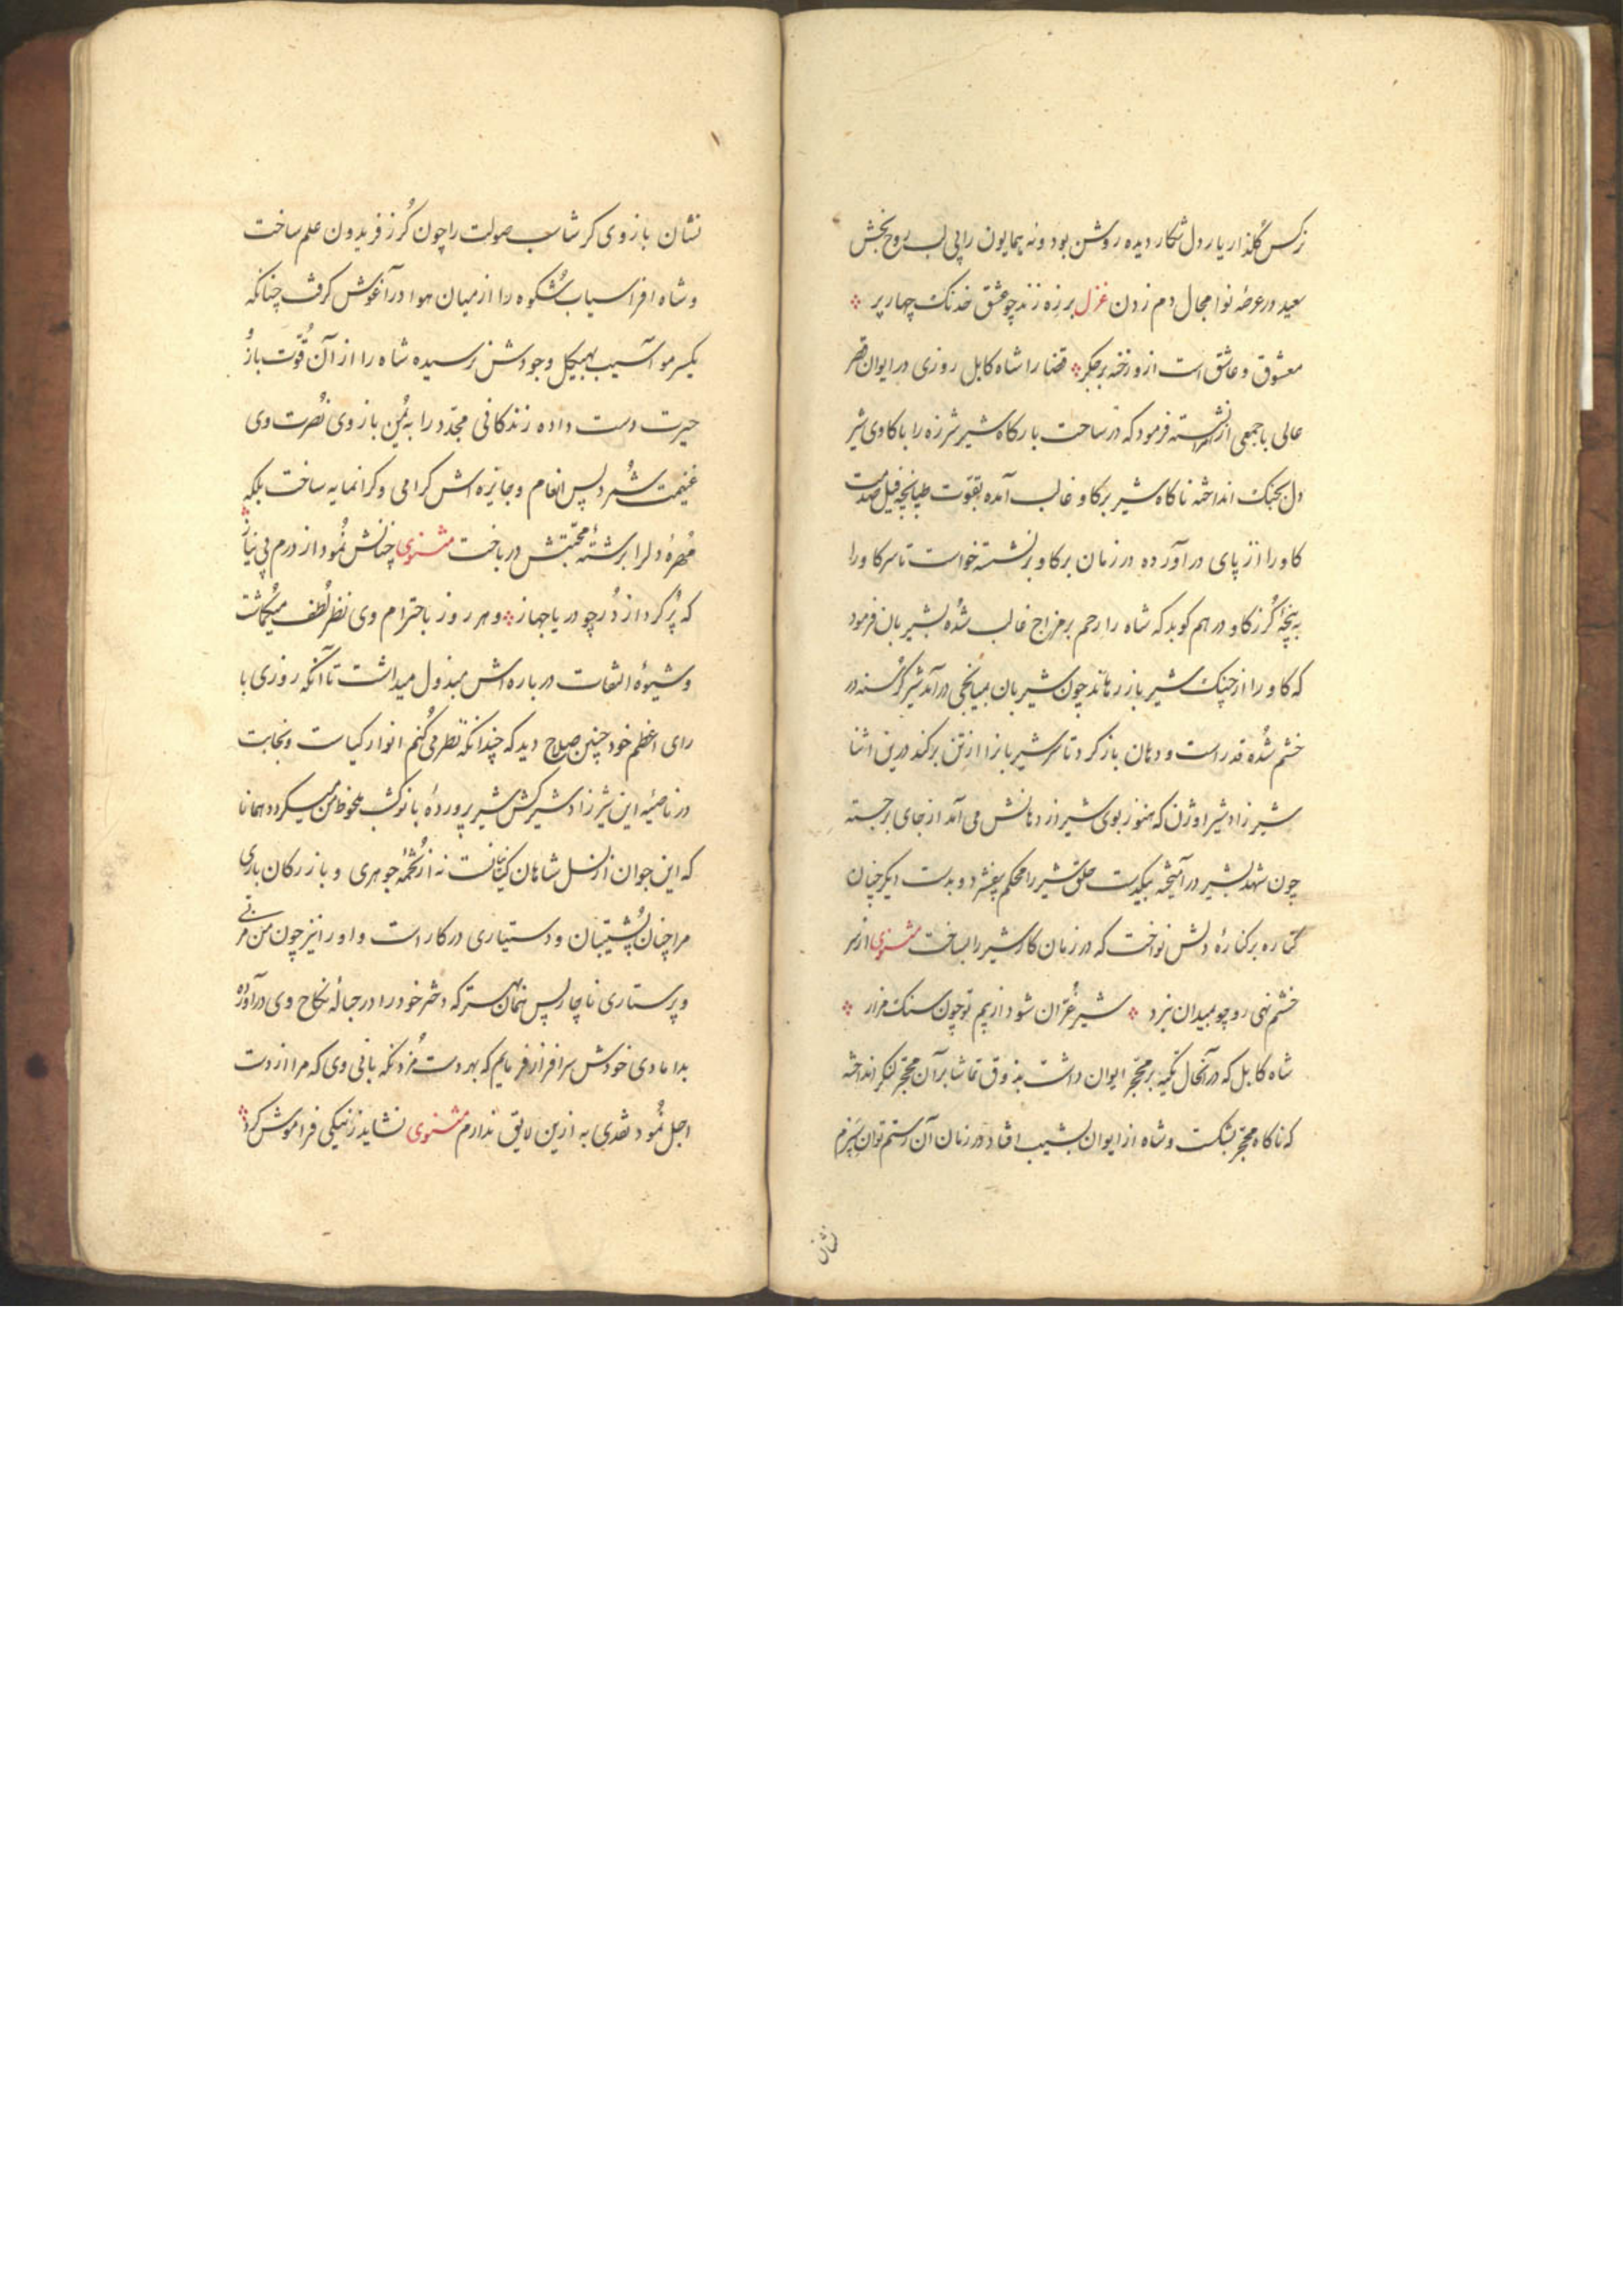 نرکس گلذار یار دل شکار دیده روشن بود و نه همایون را بی لب روح بخش
سعید در عرصهٔ نوا مجال دم زدن غزل بر زه زند چو عشق خدنک چهار پر
معشوق و عاشق است ازو زخنه بر جکر قضا را شاه کابل روزی در ایوان قصر
عالی با جمعی از نشسته فرمود که در ساحت بارکاه شیر شرزه را با کاوی شیر
دل بجنک انداخته ناکاه شیر بر کاو غالب آمده بقوّت طپانچه فیل صدمت
کاو را از پای در آورده در زمان بر کاو بر نشسته خواست تا سر کاو را
به پنجهٔ کُرز کاو در هم کوبد که شاه را رحم بر مزاج غالب شُده بشیربان فرمود
که کاو را از چنک شیر باز رهاند چون شیربان بمیانجی در آمد شیر کُرسنه در
خشم شُده قد راست و دهان باز کرد تا سر شیربانرا از تن بر کند درین اثنا
شیرزاد شیر اوژن که هنوز بوی شیر از دهانش می آمد از جای برجسته
چون شهد بشیر در آمیخته بیکدست حلق شیر را محکم بیفشرد و بدست دیکر چنان
کتاره بر کنارهٔ دلش نواخت که در زمان کار شیر را بساخت مثنوی از سر
خشم نهی رو چو بمیدان نبرد شیر غُرّان شود از بیم تو چون سنک مزار
شاه کابل که در آنحال تکیه بر محجّر ایوان داشت بذوق تماشا بر آن محجّر لنکر انداخته
که ناکاه محجّر بشکست و شاه از ایوان بشیب افتاد در زمان آن رستم توان
نشان
نشان بازوی کرشاسب صولت را چون کُرز فریدون علم ساخت
و شاه افراسیاب شُکوه را از میان هوا در آغوش کرفت چنانکه
یکسر مو آسیب بهیکل وجودش نرسیده شاه را از آن قُوّت بازُو
حیرت دست داده زندکانی مجدّد را به یُمن بازوی نُصرت وی
غنیمت شمُرد پس انعام و جایزه اش کرامی و کرانمایه ساخت بلکه
مُهرهٔ دلرا بر رشتهٔ محبّتش در باخت مثنوی چنانش نمُود از درم بی نیاز
که پُر کرد از دُر چو دریا جهاز و هر روز باحترام وی نظر لُطف میکُماشت
و شیوهٔ التفات در باره اش مبذول میداشت تا آنکه روزی با
رای اعظم خود چنین صلاح دید که چندانکه نظر می کُنم انوار کیاست و نجابت
در ناصیهٔ این شیرزاد شیرکش شیر پروردهٔ بانوکشب ملحوظ من میکردد همانا
که این جوان از نسل شاهان کیانست نه از تُخمهٔ جوهری و بازرکان باری
مرا چنان پُشتیبان و دستیاری در کار است و او را نیز چون من مربّی
و پرستاری ناچار پس همان بهتر که دختر خود را در حبالهٔ نکاح وی در آورده
بدامادی خودش سرافراز فرمایم که بهر دست مُزد نکه بانی وی که مرا از دست
اجل نمُود نقدی به ازین لایق ندارم مثنوی نشاید ز نیکی فراموش کرد